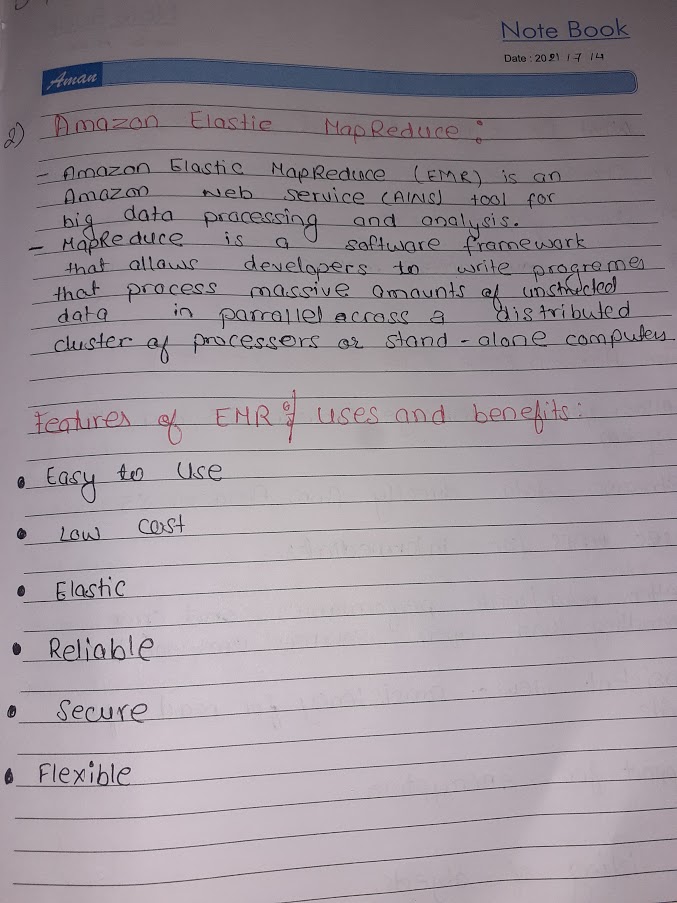 Note Book
Date : 2021 / 7 / 4
Aman
2) Amazon Elastic MapReduce :
- Amazon Elastic MapReduce (EMR) is an
Amazon Web Service (AWS) tool for
big data processing and analysis.
- MapReduce is a software framework
that allows developers to write programes
that process massive amounts of unstructed
data in parrallel across a distributed
cluster of processers or stand-alone computers
Features of EMR uses and benefits :
• Easy to Use
• Low cost
• Elastic
• Reliable
• Secure
• Flexible